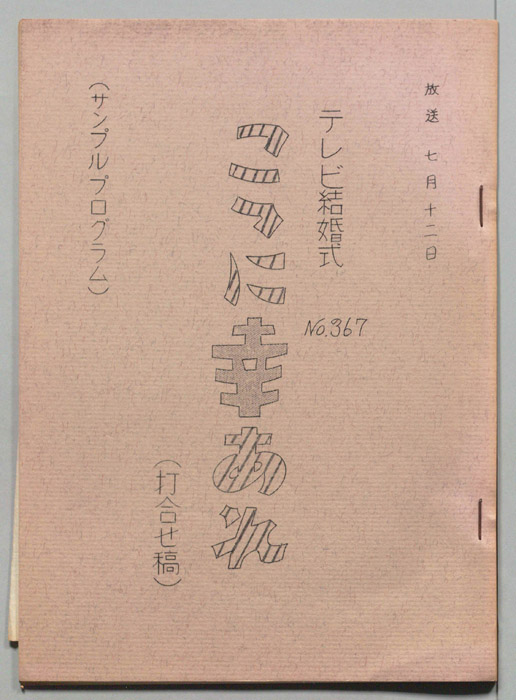 放送 七月十二日
テレビ結婚式
No.367
ここに幸あれ
（打合せ稿）
（サンプルプログラム）